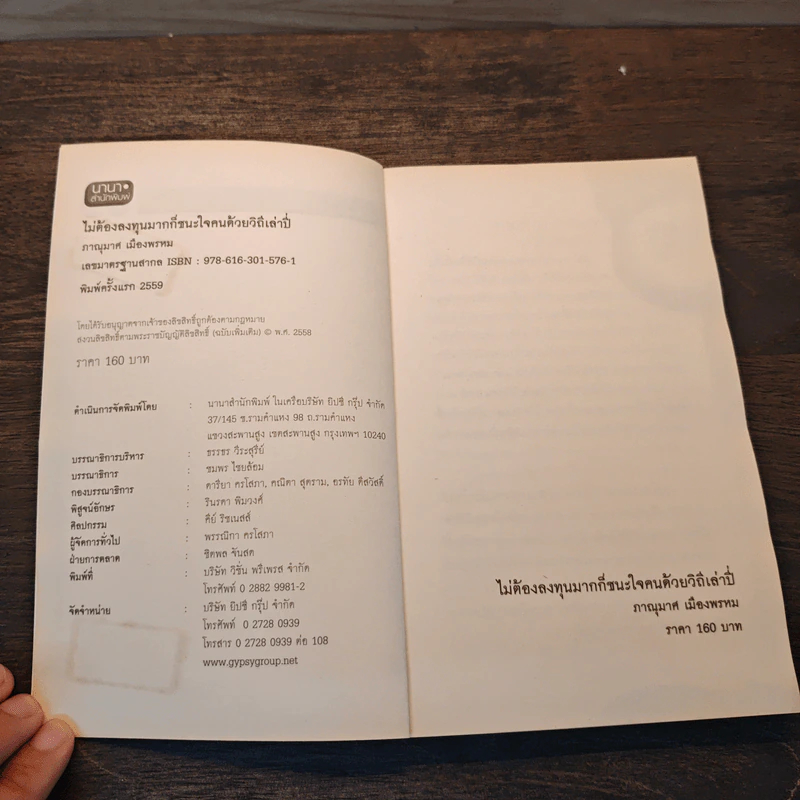 นานา
สำนักพิมพ์
ไม่ต้องลงทุนมากก็ชนะใจคนด้วยวิถีเล่าปี่
ภาณุมาศ เมืองพรหม
เลขมาตรฐานสากล ISBN : 978-616-301-576-1
พิมพ์ครั้งแรก 2559
โดยได้รับอนุญาตจากเจ้าของลิขสิทธิ์ถูกต้องตามกฎหมาย
สงวนลิขสิทธิ์ตามพระราชบัญญัติลิขสิทธิ์ (ฉบับเพิ่มเติม) © พ.ศ. 2558
ราคา 160 บาท
ดำเนินการจัดพิมพ์โดย : นานาสำนักพิมพ์ ในเครือบริษัท ยิปซี กรุ๊ป จำกัด
37/145 ซ.รามคำแหง 98 ถ.รามคำแหง
แขวงสะพานสูง เขตสะพานสูง กรุงเทพฯ 10240
บรรณาธิการบริหาร : ธรรชร วีระสุรีย์
บรรณาธิการ : ชมพร ไชยล้อม
กองบรรณาธิการ : ดารียา ครโสภา, คณิตา สุตราม, อรทัย ดีสวัสดิ์
พิสูจน์อักษร : รินรดา พิมวงศ์
ศิลปกรรม : คีย์ ริชเนสส์
ผู้จัดการทั่วไป : พรรณิกา ครโสภา
ฝ่ายการตลาด : ชิตพล จันสด
พิมพ์ที่ : บริษัท วิชั่น พรีเพรส จำกัด
โทรศัพท์ 0 2882 9981-2
จัดจำหน่าย : บริษัท ยิปซี กรุ๊ป จำกัด
โทรศัพท์ 0 2728 0939
โทรสาร 0 2728 0939 ต่อ 108
www.gypsygroup.net
ไม่ต้องลงทุนมากก็ชนะใจคนด้วยวิถีเล่าปี่
ภาณุมาศ เมืองพรหม
ราคา 160 บาท